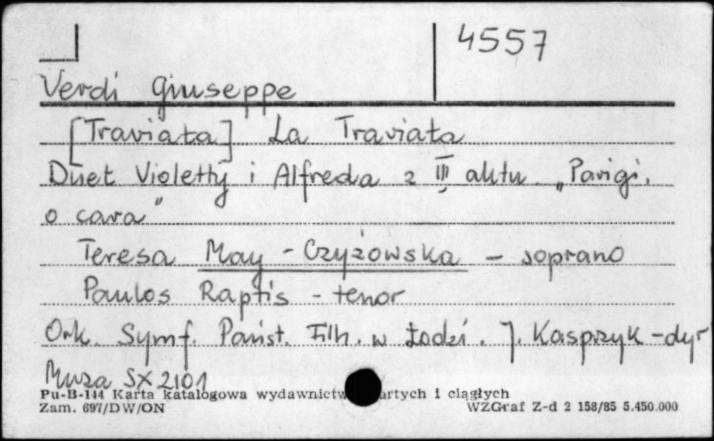 4557
Verdi Giuseppe
[Traviata] La Traviata
Duet Violetty i Alfreda z III aktu „Parigi,
o cara"
Teresa May - Czyżowska - soprano
Paulos Raptis - tenor
Ork. Symf. Państ. Filh. w Łodzi. J. Kasprzyk - dyr
Muza SX 2101
Pu-B-144 Karta katalogowa wydawnictw artych i ciągłych
Zam. 697/DW/ON WZGraf Z-d 2 158/85 5.450.000